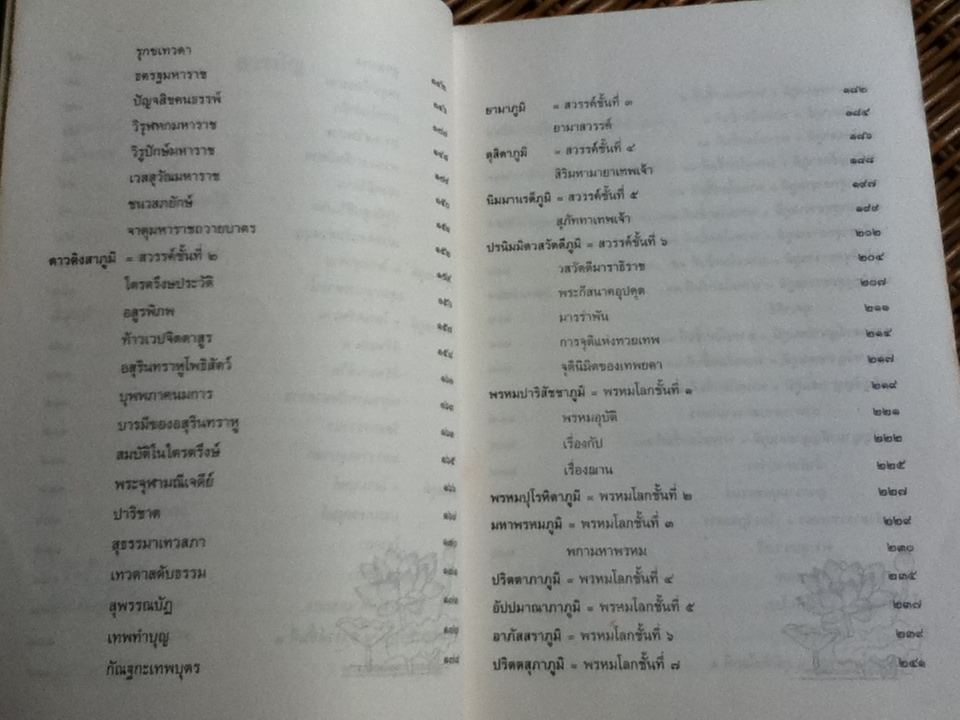 รุกขเทวดา
ธตรฐมหาราช
ปัญจสิขคนธรรพ์
วิรุฬหกมหาราช
วิรูปักษ์มหาราช
เวสสุวัณมหาราช
ชนวสภยักษ์
จาตุมหาราชถวายบาตร
ดาวดึงสาภูมิ = สวรรค์ชั้นที่ ๒
ไตรตรึงษประวัติ
อสูรพิภพ
ท้าวเวปจิตตาสูร
อสุรินทราหูโพธิสัตว์
บุพพภาคนมการ
บารมีของอสุรินทราหู
สมบัติในไตรตรึงษ์
พระจุฬามณีเจดีย์
ปาริชาต
สุธรรมาเทวสภา
เทวดาสดับธรรม
สุพรรณบัฏ
เทพทำบุญ
กัณฐกะเทพบุตร
ยามาภูมิ = สวรรค์ชั้นที่ ๓ ๑๘๒
ยามาสวรรค์ ๑๘๔
ดุสิตาภูมิ = สวรรค์ชั้นที่ ๔ ๑๘๖
สิริมหามายาเทพเจ้า ๑๘๘
นิมมานรดีภูมิ = สวรรค์ชั้นที่ ๕ ๑๙๗
สุภัททาเทพเจ้า ๑๙๙
ปรนิมมิตวสวัตดีภูมิ = สวรรค์ชั้นที่ ๖ ๒๐๒
วสวัตดีมาราธิราช ๒๐๔
พระกีสนาคอุปคุต ๒๐๗
มารรำพัน ๒๑๑
การจุติแห่งทวยเทพ ๒๑๔
จุตินิมิตของเทพยดา ๒๑๗
พรหมปาริสัชชาภูมิ = พรหมโลกชั้นที่ ๑ ๒๑๙
พรหมอุบัติ ๒๒๑
เรื่องกัป ๒๒๒
เรื่องฌาน ๒๒๕
พรหมปุโรหิตาภูมิ = พรหมโลกชั้นที่ ๒ ๒๒๗
มหาพรหมภูมิ = พรหมโลกชั้นที่ ๓ ๒๒๙
พกามหาพรหม ๒๓๐
ปริตตาภาภูมิ = พรหมโลกชั้นที่ ๔ ๒๓๕
อัปปมาณาภาภูมิ = พรหมโลกชั้นที่ ๕ ๒๓๗
อาภัสสราภูมิ = พรหมโลกชั้นที่ ๖ ๒๓๙
ปริตตสุภาภูมิ = พรหมโลกชั้นที่ ๗ ๒๔๑